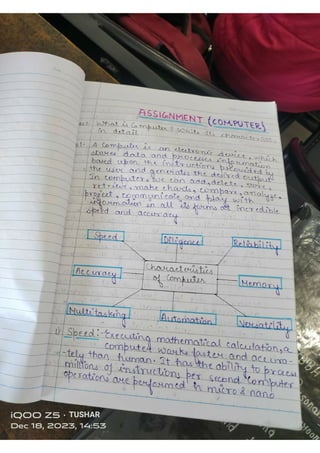 ASSIGNMENT (COMPUTER)
What is Computer? Write its characteristics
in detail
A computer is an electronic device, which
stores data and processes information
based upon the instructions provided by
the user and generates the desired output.
in computer, we can add, delete, save,
retrieve, make charts, compare, analyze,
project, communicate and play with
information in all its forms at incredible
speed and accuracy
Speed
Diligence
Reliability
Accuracy
Characteristics
of Computer
Memory
Multitasking
Automation
Versatility
Speed: Executing mathematical calculation, a
computer works faster and accura-
-tely than human. It has the ability to process
millions of instructions per second. Computer
operations are performed in micro & nano
iQOO Z5 · TUSHAR
Dec 18, 2023, 14:53